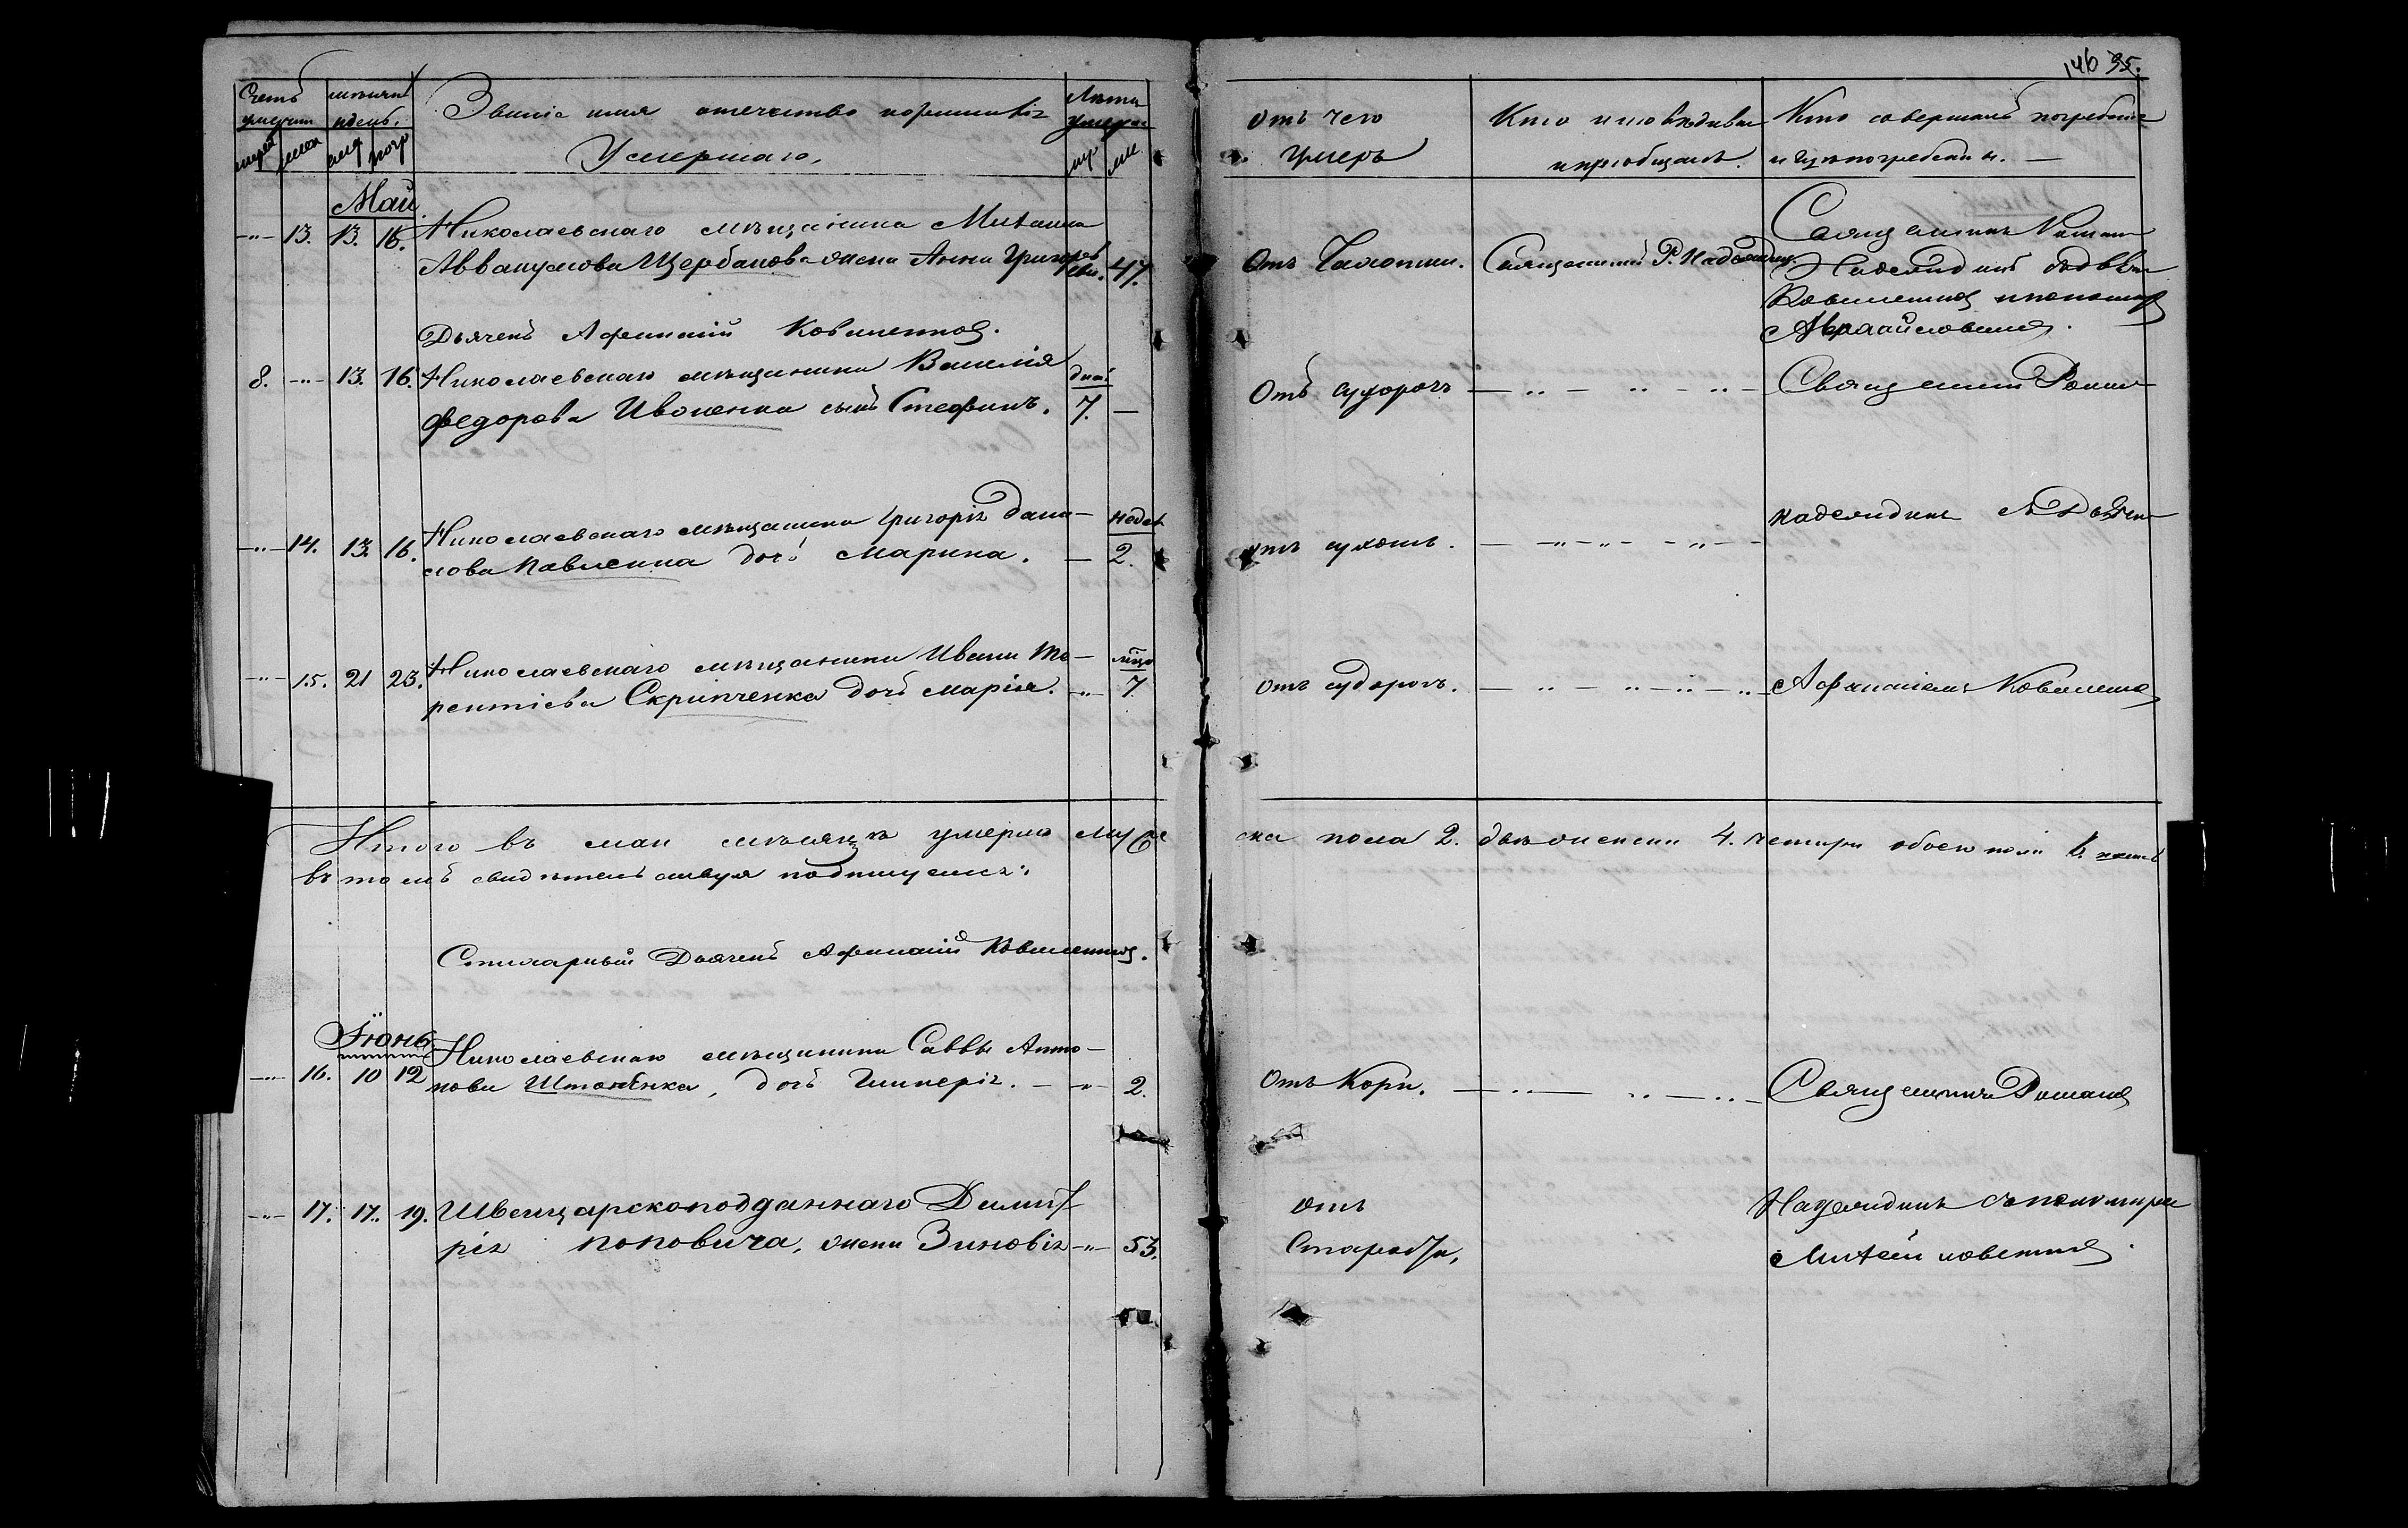 146 35.
Счетъ умершихъ
мѣсяцъ и день.
Званіе имя отечество и фамилія
Умершаго.
Лѣта умерш
муж жен
умр погр
му ж
отъ чего умеръ
Кто исповѣдывал и пріобщалъ.
Кто совершалъ погребеніе и гдѣ погребены. —
Май
-"- 13. 13. 16. Николаевскаго мѣщанина Михаила
Аввакумова Щербакова жена Анна Григорьева. 47.
Отъ Чахотки. Священникъ Р. Надеждинъ
Священникъ Роман
Надеждинъ съ дьяч
Коваленко и пономар
Дьячекъ Афанасій Коваленко.
8. -"- 13. 16. Николаевскаго мѣщанина Василія дней
Федорова Ивоненка сынъ Стефанъ. 7. —
Отъ судорогъ — " — " — " — Священник Роман
-"- 14. 13. 16. Николаевскаго мѣщанина Григорія Дани- недел
лова Павленка дочь Марина. — 2.
отъ сухотъ. — " — " — " — Надеждинъ съ Дьячк
-"- 15. 21 23. Николаевскаго мѣщанина Ивана Те- мѣцъ
рентіева Скрипченка дочь Марія. -"- 7.
отъ судорогъ. — " — " — " — Афанасіемъ Коваленко
Итого въ маи мѣсяцѣ умерло мужеска пола 2. два женска 4. четыри обоего пола 6. шесть
въ томъ свидѣтельствуя подпишемся:
Стихарный Дьячекъ Афанасій Коваленко.
Іюнь
-"- 16. 10 12 Николаевскаго мѣщанина Саввы Анто-
нова дочь Гликерія. — " — 2.
Отъ Кори. — " — " — " — Священникъ Романъ
-"- 17. 17. 19. Швейцарскоподданнаго Димит-
рія Поповича, жена Зиновія -"- 53.
отъ
Старости,
Надеждинъ съ пономаре